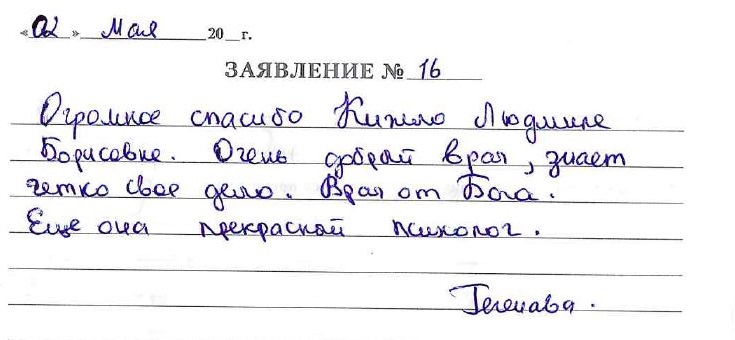 «02» Мая 20__г.
ЗАЯВЛЕНИЕ № 16
Огромное спасибо Людмиле
Борисовне. Очень добрый врач, знает
четко свое дело. Врач от Бога.
Еще она прекрасный психолог.